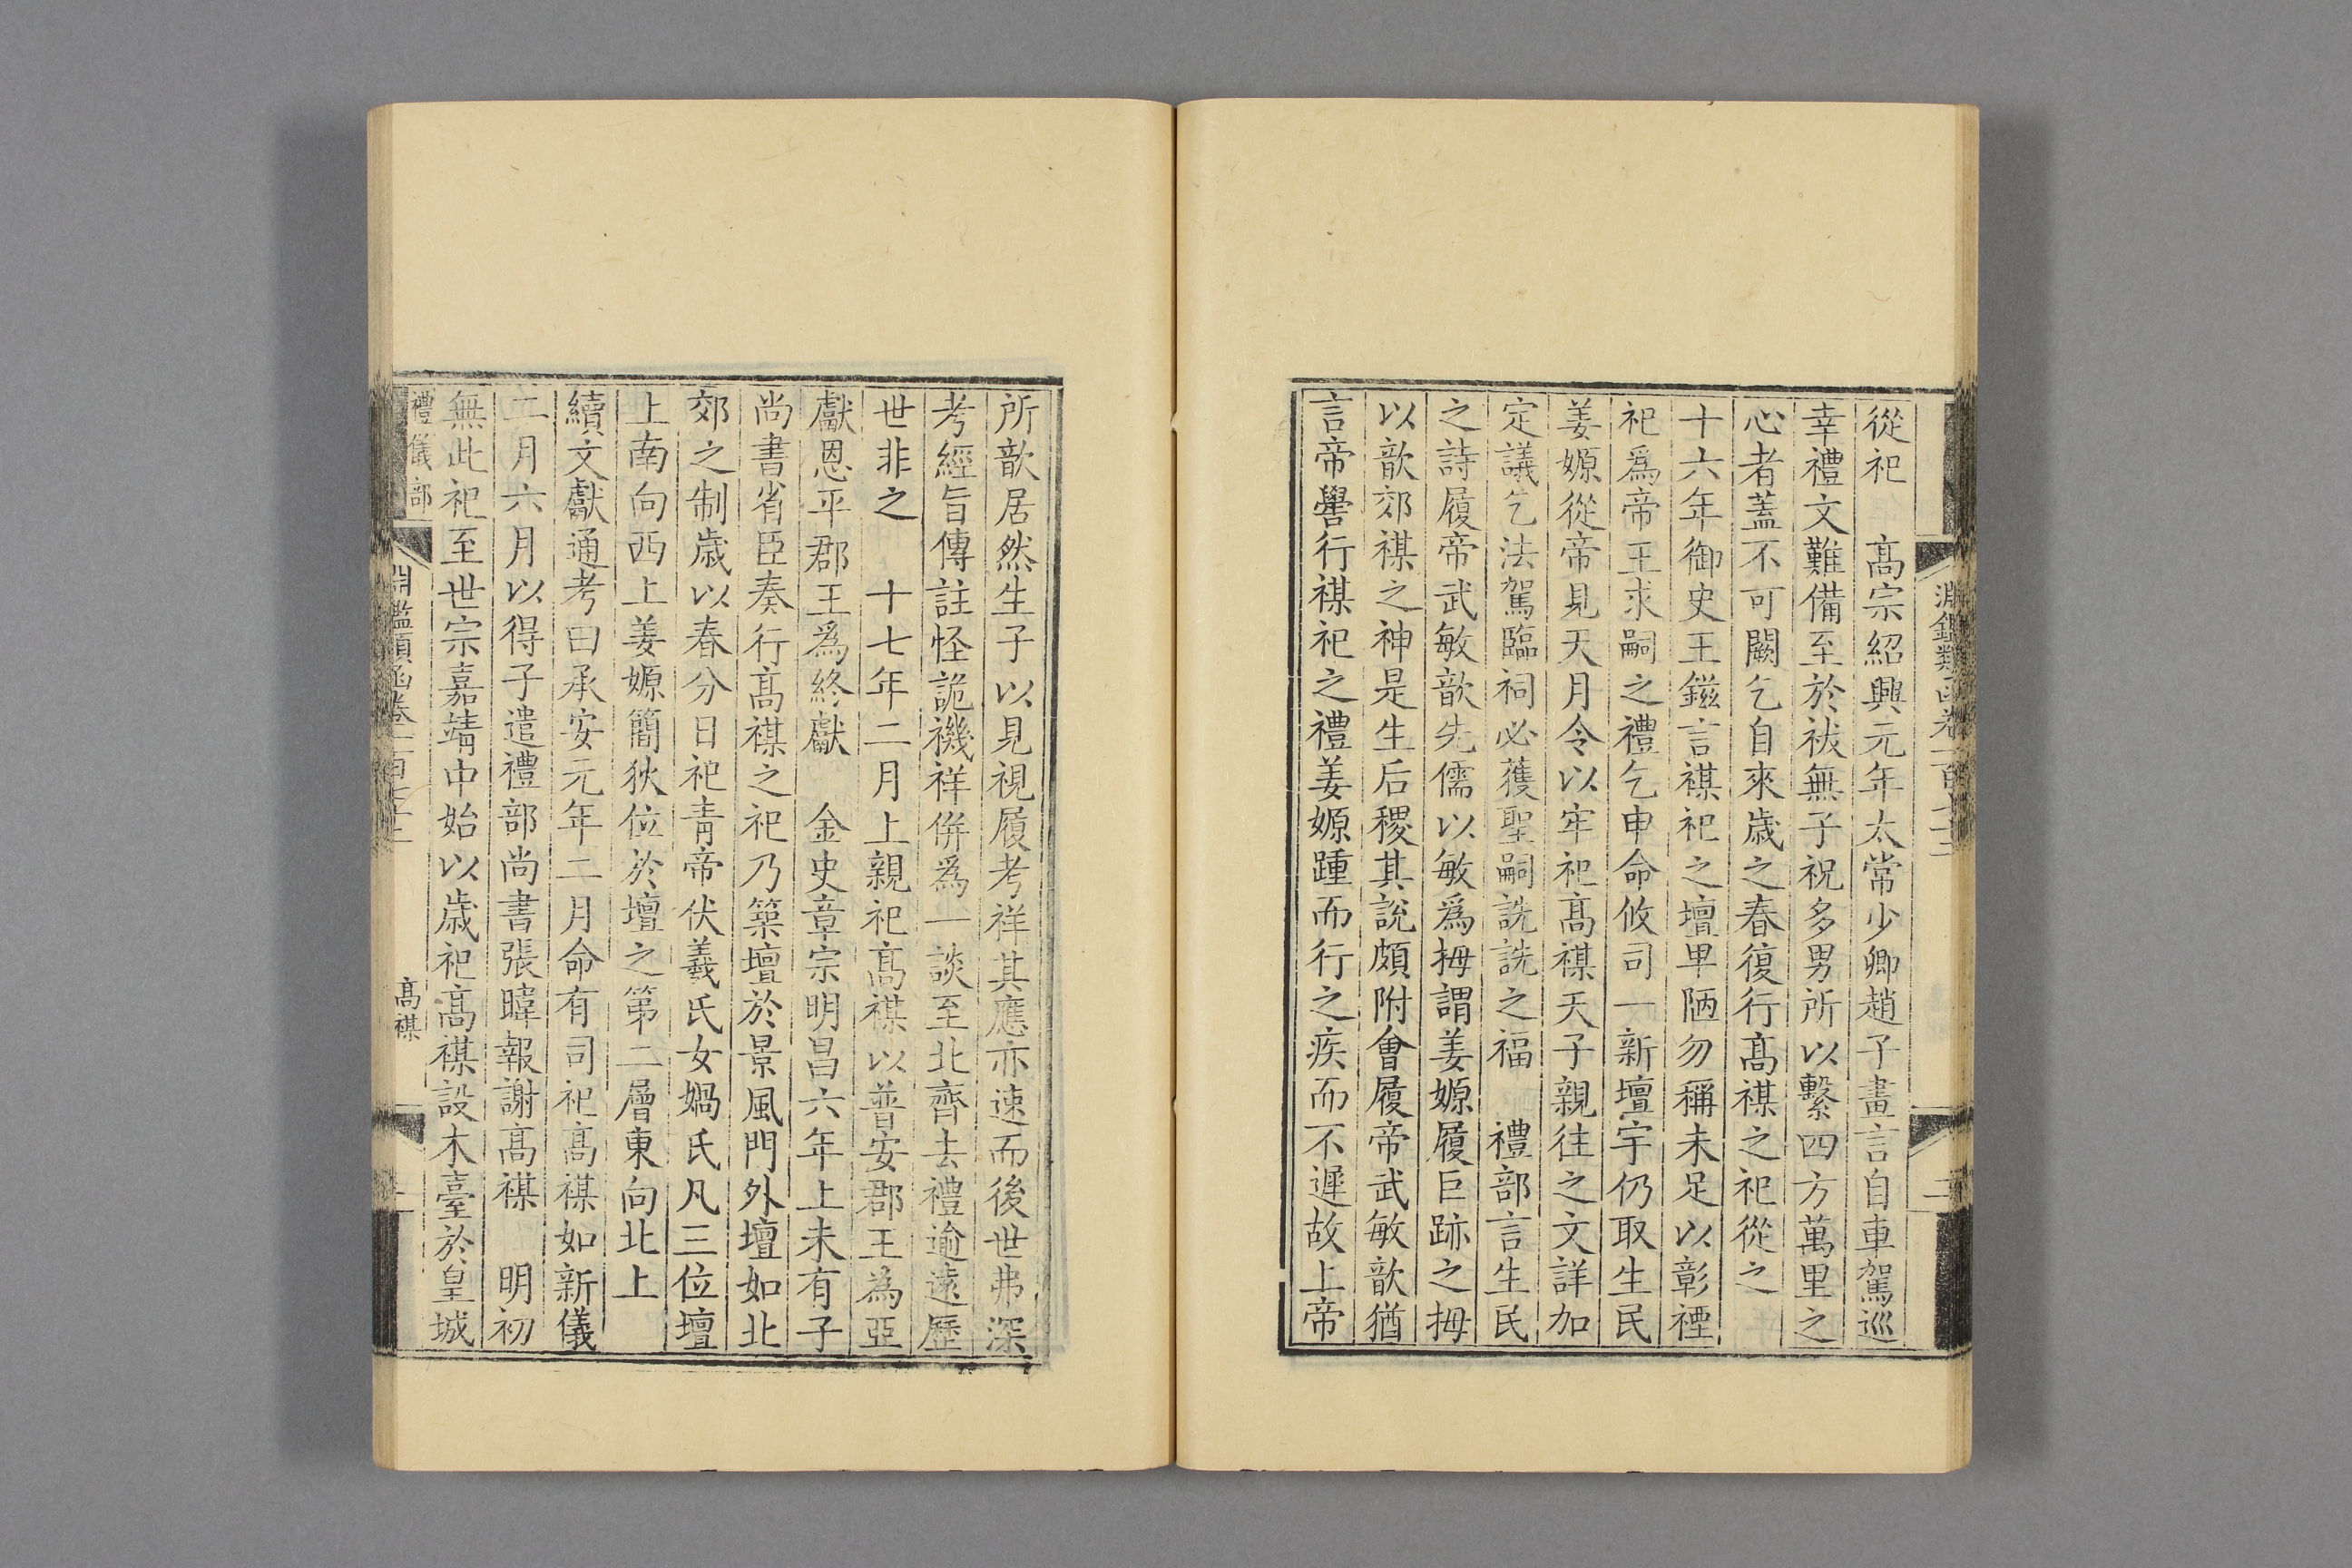 淵鑑類函卷一百六十三
從祀　高宗紹興元年太常少卿趙子畫言自車駕巡
幸禮文難備至於祓無子祝多男所以繫四方萬里之
心者蓋不可闕乞自來歲之春復行高禖之祀從之
十六年御史王鎡言禖祀之壇卑陋勿稱未足以彰禋
祀爲帝王求嗣之禮乞申命攸司一新壇宇仍取生民
姜嫄從帝見天月令以牢祀高禖天子親往之文詳加
定議乞法駕臨祠必獲聖嗣詵詵之福　禮部言生民
之詩履帝武敏歆先儒以敏爲拇謂姜嫄履巨跡之拇
以歆郊禖之神是生后稷其說頗附會履帝武敏歆猶
言帝嚳行禖祀之禮姜嫄踵而行之疾而不遲故上帝
所歆居然生子以見視履考祥其應亦速而後世弗深
考經旨傳註怪詭禨祥併爲一談至北齊去禮逾遠歷
世非之　十七年二月上親祀高禖以普安郡王為亞
獻恩平郡王爲終獻　金史章宗明昌六年上未有子
尚書省臣奏行高禖之祀乃築壇於景風門外壇如北
郊之制歲以春分日祀青帝伏羲氏女媧氏凡三位壇
上南向西上姜嫄簡狄位於壇之第二層東向北上
續文獻通考曰承安元年二月命有司祀高禖如新儀
二月六月以得子遣禮部尚書張暐報謝高禖　明初
無此祀至世宗嘉靖中始以歲祀高禖設木臺於皇城
禮儀部
高禖